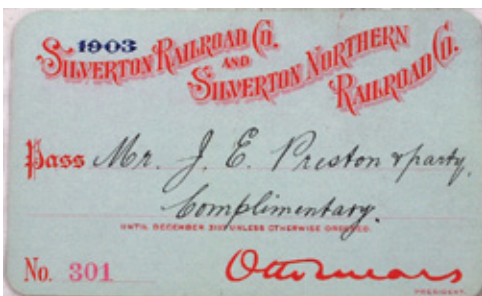 1903
SILVERTON RAILROAD CO.
AND
SILVERTON NORTHERN
RAILROAD CO.
Pass Mr. J. E. Preston & party.
Complimentary.
UNTIL DECEMBER 31ST UNLESS OTHERWISE ORDERED.
No. 301 Otto Mears
PRESIDENT.